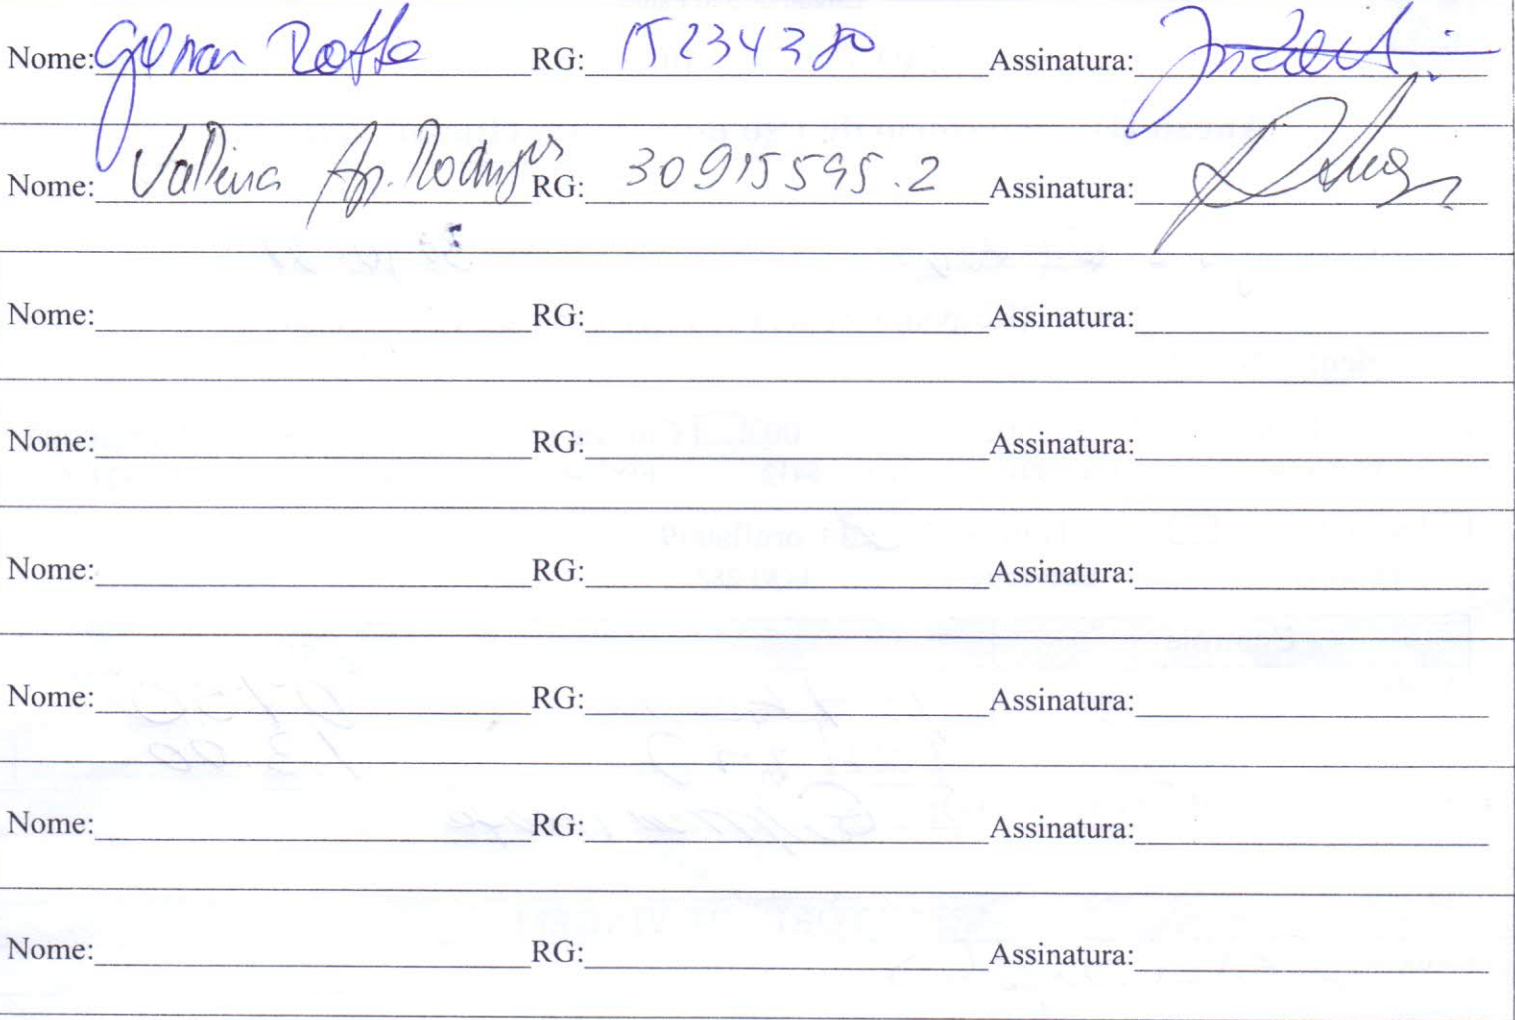 Nome: Gilmar Roffe RG: 15234380 Assinatura:
Nome: Ap. Rodrigues RG: 30915595.2 Assinatura:
Nome: RG: Assinatura:
Nome: RG: Assinatura:
Nome: RG: Assinatura:
Nome: RG: Assinatura:
Nome: RG: Assinatura:
Nome: RG: Assinatura: